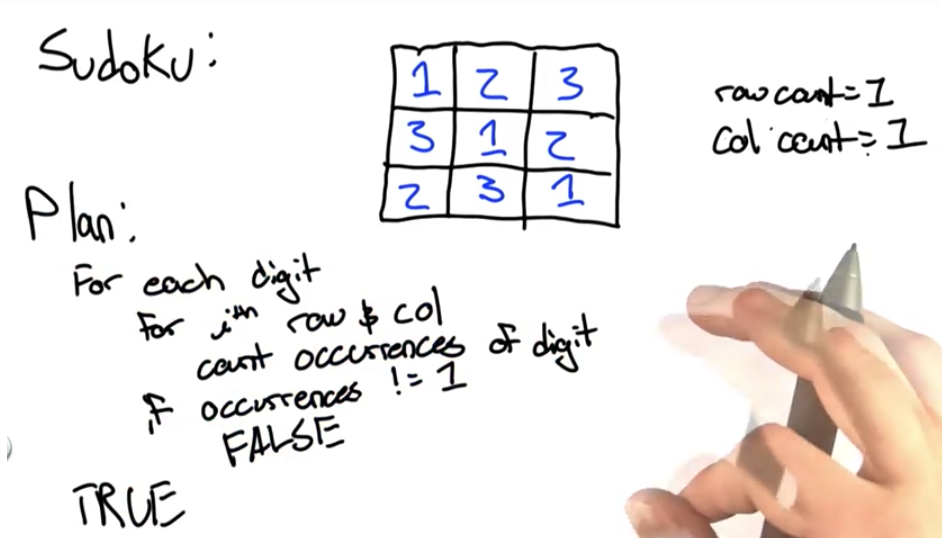 Sudoku:
1 2 3
3 1 2
2 3 1
row count=1
col count=1
Plan:
For each digit
For ith row & col
count occurrences of digit
if occurrences != 1
FALSE
TRUE